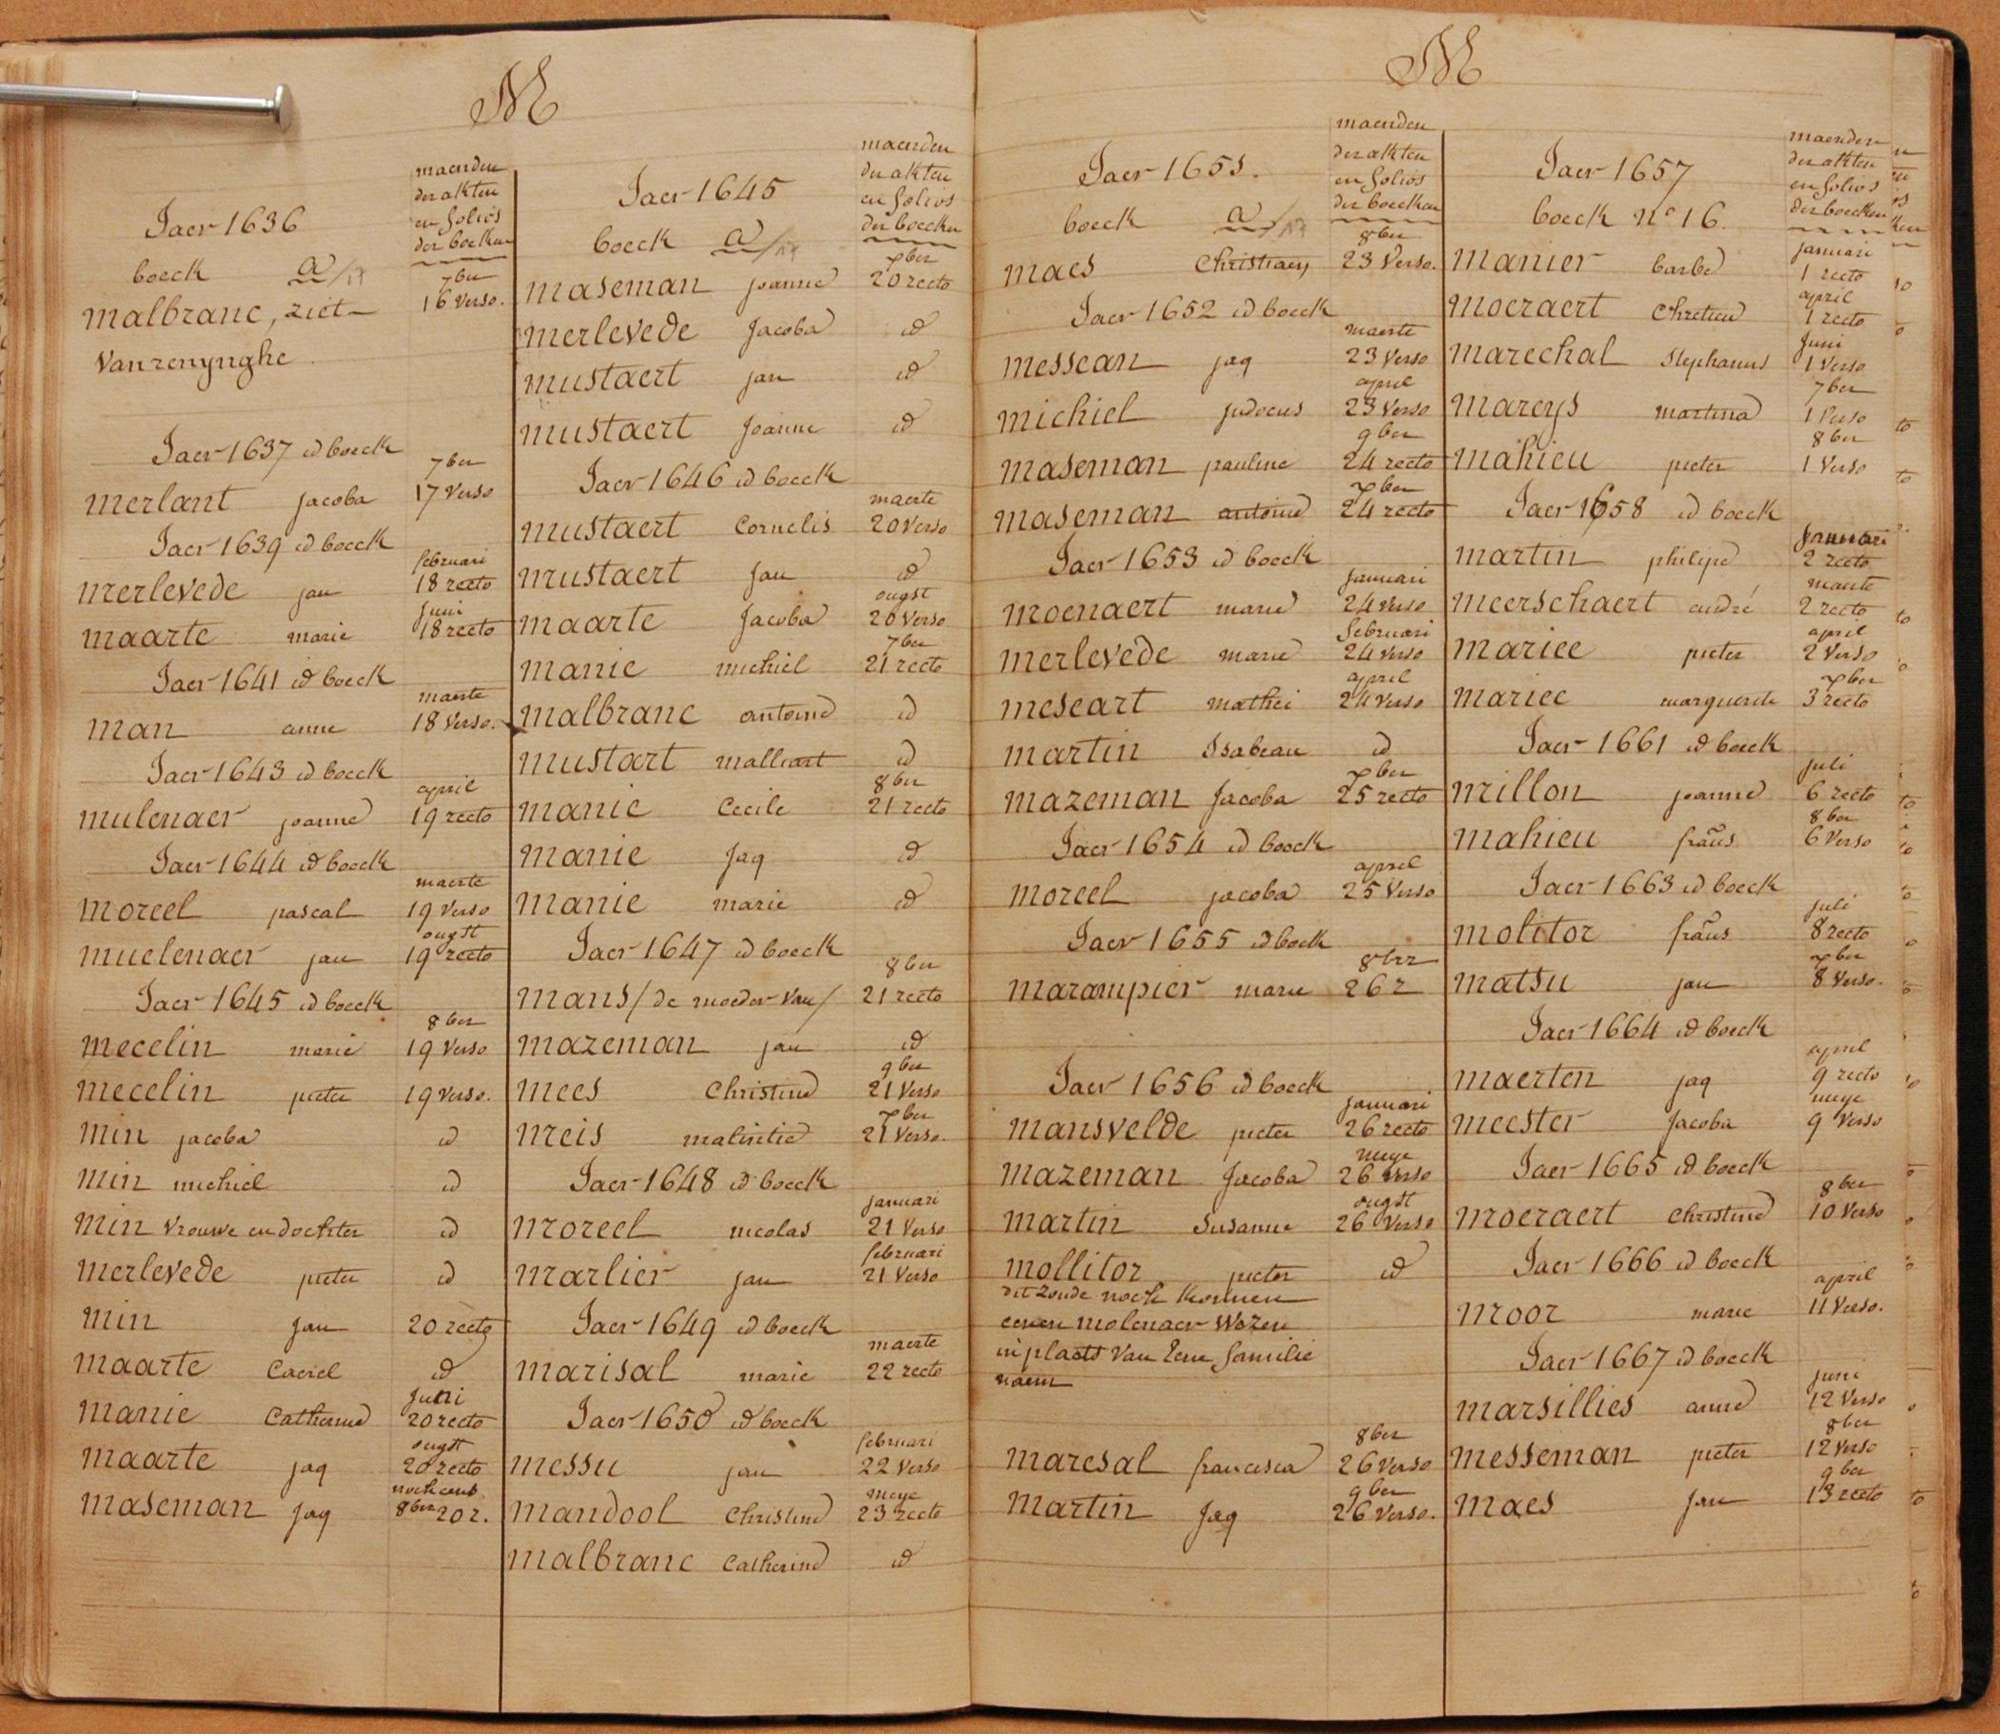 M
maenden
der akten
en folios
der boeken
Jaer 1636
boeck a/17
7ber
malbranc, ziet 16 verso.
Vanrenynghe
Jaer 1637 id boeck
7ber
merlant jacoba 17 verso
Jaer 1639 id boeck
februari
merlevede jan 18 recto
juni
maarte marie 18 recto
Jaer 1641 id boeck
maerte
man anne 18 verso.
Jaer 1643 id boeck
april
mulenaer joanne 19 recto
Jaer 1644 id boeck
maerte
moreel pascal 19 verso
ougst
muelenaer jan 19 recto
Jaer 1645 id boeck
8ber
mecelin marie 19 verso
mecelin pieter 19 verso.
min jacoba id
min michiel id
min vrouwe en dochter id
merlevede pieter id
min jan 20 recto
maarte Caerel id
juni
manie Catherine 20 recto
ougst
maarte jaq 20 recto
maseman jaq 8ber 20 r.
maenden
der akten
en folios
der boecken
Jaer 1645
boeck a/17
7ber
maseman joanne 20 recto
merlevede Jacoba id
mustaert jan id
mustaert Joanne id
Jaer 1646 id boeck
maerte
mustaert Cornelis 20 verso
mustaert Jan id
ougst
maarte Jacoba 20 verso
7ber
manie michiel 21 recto
malbranc antoine id
mustart malliart id
8ber
manie Cecile 21 recto
manie Jaq id
manie marie id
Jaer 1647 id boeck
8ber
mans/de moeder van/ 21 recto
mazeman jan id
9ber
mees Christine 21 verso
7ber
meis 21 verso.
Jaer 1648 id boeck
januari
moreel nicolas 21 verso
februari
marlier jan 21 verso
Jaer 1649 id boeck
maerte
marisal marie 22 recto
Jaer 1650 id boeck
februari
messu jan 22 verso
meye
mandool Christine 23 recto
malbranc Catherine id
M
maenden
der akten
en folios
der boecken
Jaer 1651.
boeck a/17
8ber
maes Christiaen 23 verso.
Jaer 1652 id boeck
maerte
messean jaq 23 verso
april
michiel judocus 23 verso
9ber
maseman pauline 24 recto
7ber
maseman antoine 24 recto
Jaer 1653 id boeck
januari
moenaert marie 24 verso
februari
merlevede marie 24 verso
april
meseart mathei 24 verso
martin Isabeau id
7ber
mazeman Jacoba 25 recto
Jaer 1654 id boeck
april
moreel jacoba 25 verso
Jaer 1655 id boeck
marampier marie 26 r
Jaer 1656 id boeck
januari
mansvelde pieter 26 recto
meye
mazeman Jacoba 26 verso
ougst
martin Susanne 26 verso
mollitor pieter id
dit zoude noch konnen
eenen molenaer wezen
in plaets van eene familie
naem
8ber
maresal francisca 26 verso
9ber
martin Jaq 26 verso.
maenden
der akten
en folios
der boecken
Jaer 1657
boeck n° 16.
januari
manier barbe 1 recto
april
moeraert Chretien 1 recto
juni
marechal Stephanus 1 verso
7ber
mareys martina 1 verso
8ber
mahieu pieter 1 verso
Jaer 1658 id boeck
januari
martin philipe 2 recto
maerte
meerschaert andré 2 recto
april
mariee pieter 2 verso
7ber
mariee marguerite 3 recto
Jaer 1661 id boeck
juli
millon joanne 6 recto
8ber
mahieu frañs 6 verso
Jaer 1663 id boeck
juli
molitor frañs 8 recto
7ber
matsu jan 8 verso.
Jaer 1664 id boeck
april
maerten jaq 9 recto
meye
meester Jacoba 9 verso
Jaer 1665 id boeck
8ber
moeraert Christine 10 verso
Jaer 1666 id boeck
april
moor marie 11 verso.
Jaer 1667 id boeck
juni
marsillies anne 12 verso
8ber
messeman pieter 12 verso
9ber
maes jan 13 recto